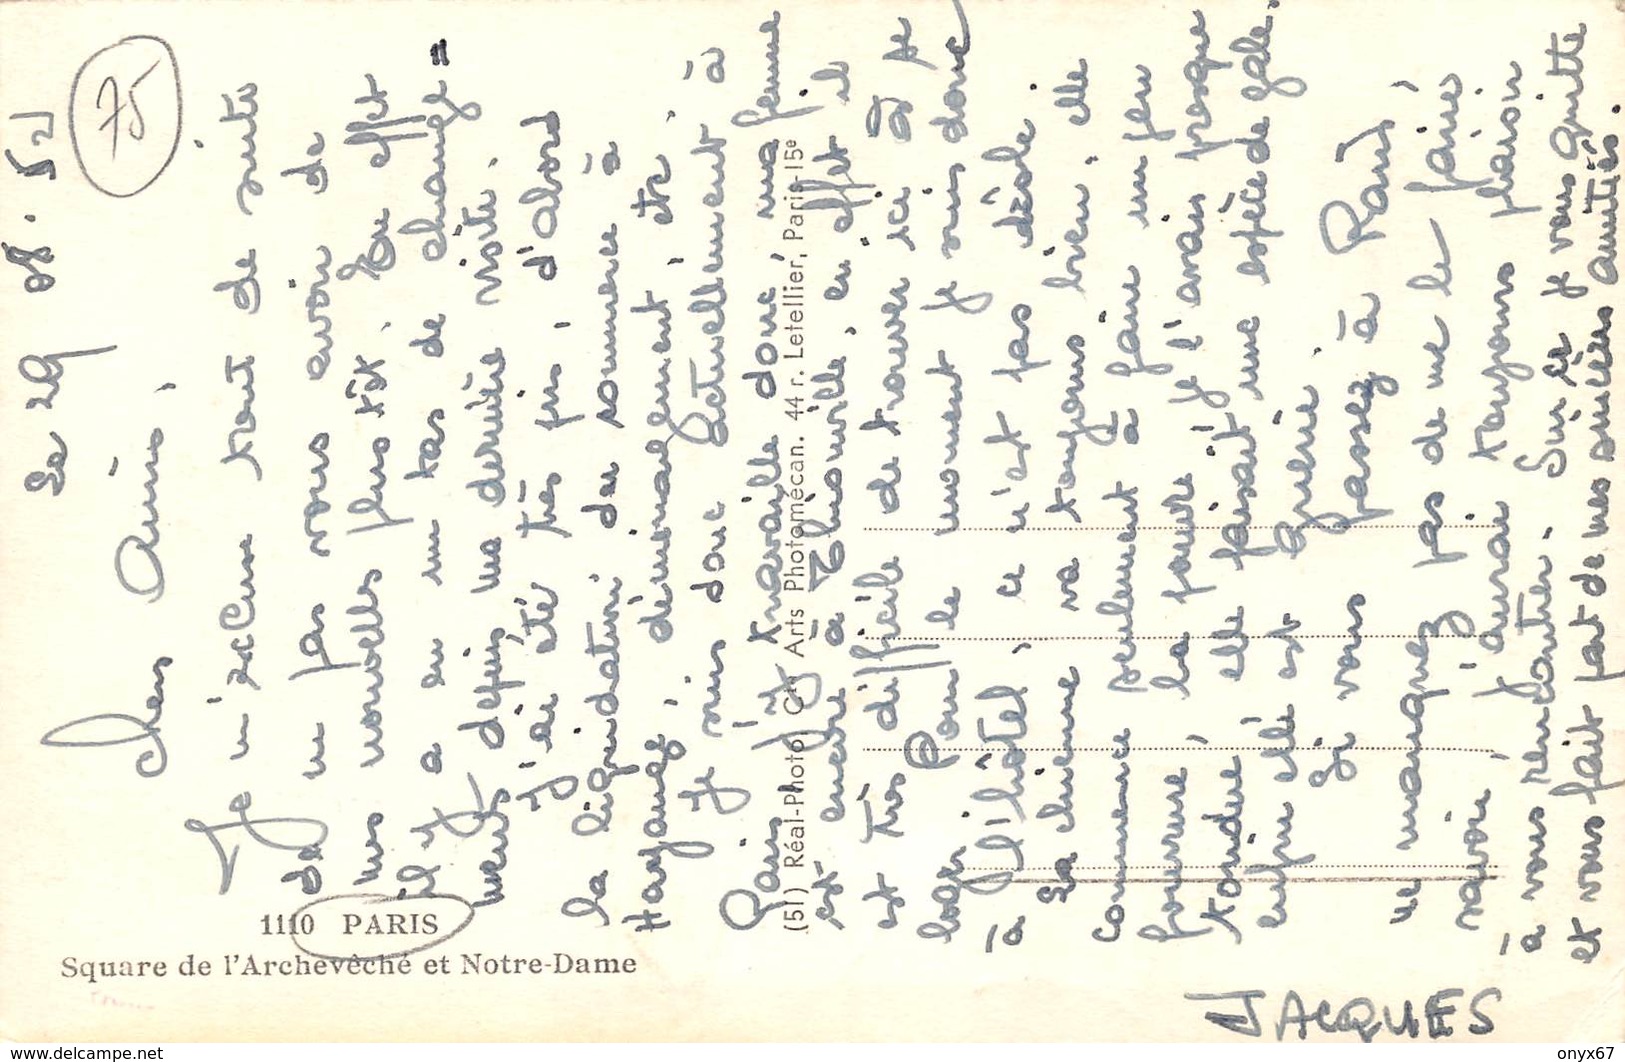 Le 29.08.52
75
Chers Amis,
Je m'excuse tout de suite
de ne pas vous avoir de
mes nouvelles plus tôt. En effet
il y a eu un tas de change=
ments depuis ma dernière visite.
J'ai été très pris, d'abord
la liquidation des semences à
Hayange, déménagement, etc.
Je suis donc actuellement à
Paris j'y travaille donc, ma femme
est encore à Thionville, en effet il
est très difficile de trouver ici à se
loger. Pour le moment je suis donc
à l'hôtel, ce n'est pas drôle.
La chienne va toujours bien, elle
commence seulement à faire un peu
fourrure, la pauvre je l'avais presque
tondue, elle faisait une espèce de gale.
enfin elle est guérie.
Si vous passez à Paris,
ne manquez pas de me le faire
savoir, j'aurai toujours plaisir
à vous rencontrer. Sur ce je vous quitte
et vous fait part de mes sincères amitiés.
JACQUES
1110 PARIS
Square de l'Archevêché et Notre-Dame
(51) Réal-Photo, Cie Arts Photomécan. 44 r. Letellier, Paris-15e
www.delcampe.net
onyx67